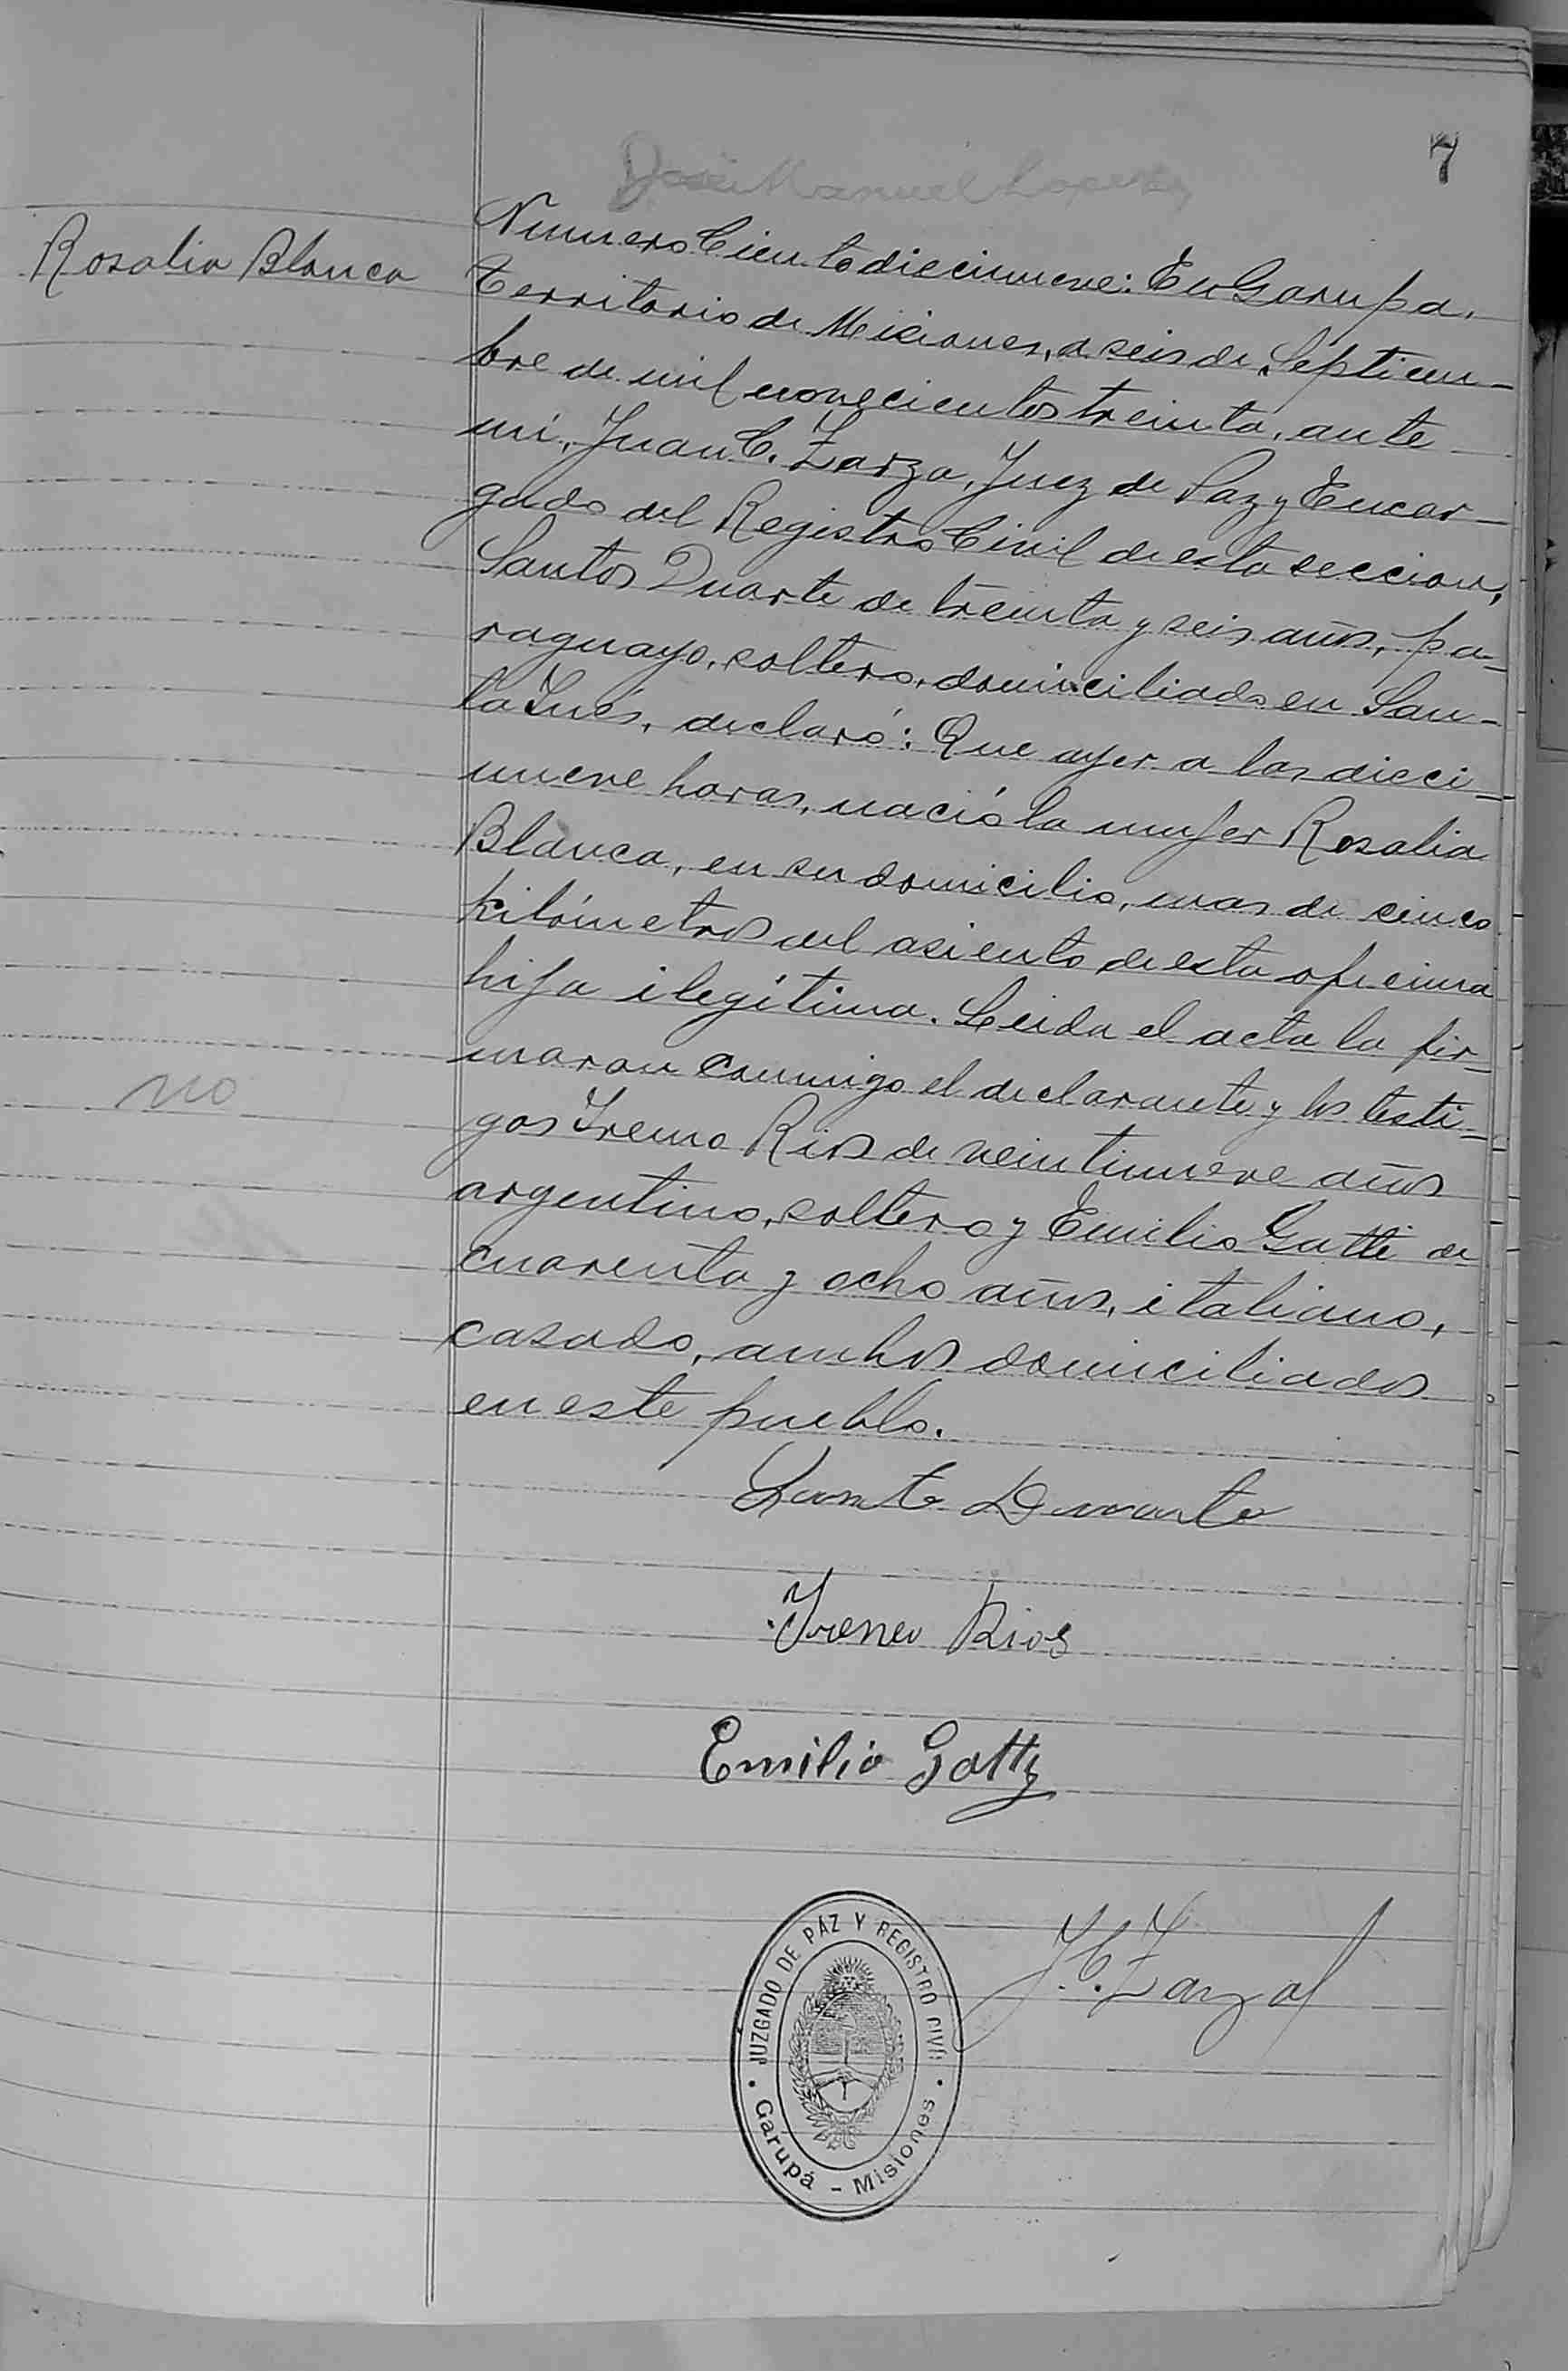 7
José Manuel Lopez
Rosalia Blanca
Número Ciento diecinueve: En Garupa,
Territorio de Misiones, a seis de Septiem-
bre de mil novecientos treinta, ante
mí, Juan C. Zarza, Juez de Paz y Encar-
gado del Registro Civil de esta seccion,
Santos Duarte de treinta y seis años, pa-
raguayo, soltero, domiciliado en San-
ta Inés, declaró: Que ayer a las dieci-
nueve horas, nació la mujer Rosalia
Blanca, en su domicilio, mas de cinco
kilómetros del asiento de esta oficina
hija ilegítima. Leida el acta la fir-
maron conmigo el declarante y los testi-
gos Ireneo Rios de veintinueve años
argentino, soltero y Emilio Gatti de
cuarenta y ocho años, italiano,
casado, ambos domiciliados
en este pueblo.
no
Santo Duarte
Ireneo Rios
Emilio Gatty
J. C. Zarza
JUZGADO DE PAZ Y REGISTRO CIVIL
Garupá - Misiones